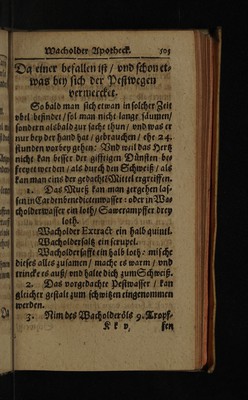 Wacholder Apotheck. 503
Da einer befallen ist / vnd schon et-
was bey sich der Pestwegen
vermercket.
So bald man sich etwan in solcher Zeit
vbel befindet / sol man nicht lange säumen /
sondern alsbald zur sache thun / vnd was er
nur bey der hand hat / gebrauchen / ehe 24.
stunden vorbey gehen: Vnd weil das Hertz
nicht kan besser der gifftigen Dünsten be-
freyet werden / als durch den Schweiß / als
kan man eins der gedachten Mittel ergreiffen.
1. Das Muß kan man zergehen las-
sen in Cardenbenedictenwasser: oder in Wa-
cholderwasser ein loth / Sawerampffer drey
loth.
Wacholder Extract ein halb quintl.
Wacholdersaltz ein scrupel.
Wacholdersafft ein halb loth: mische
dieses alles zusamen / mache es warm / vnd
trincke es auß / vnd halte dich zum Schweiß.
2. Das vorgedachte Pestwasser / kan
gleicher gestalt zum schwitzen eingenommen
werden.
3. Nim des Wacholderöls 9. Tropf-
K k v, sen